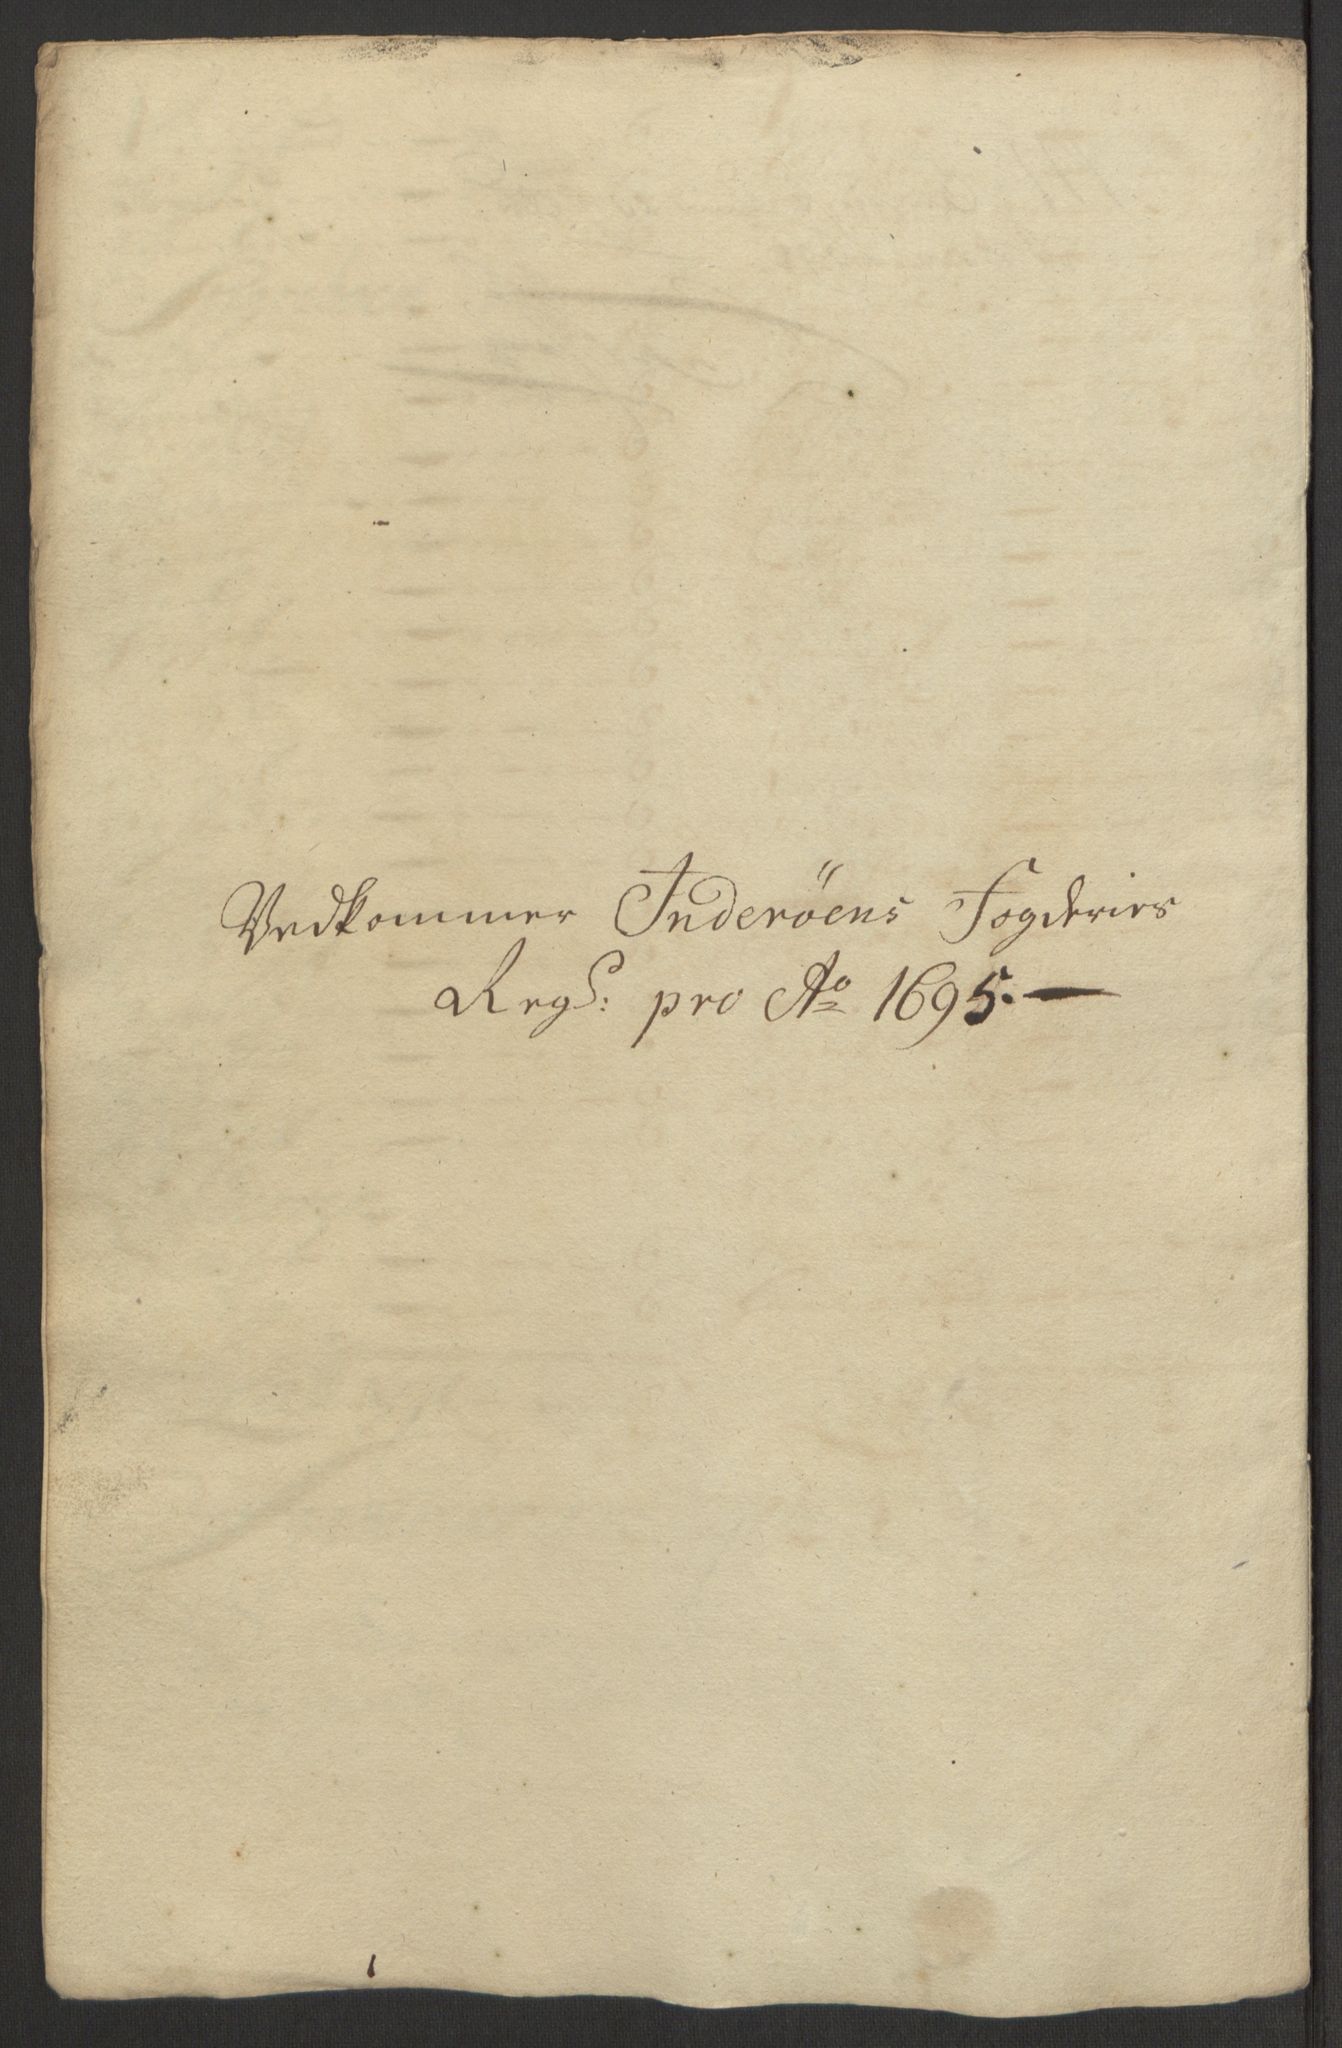 Vedkommer Inderöens Fogderies
Regs: pro Ao 1695.